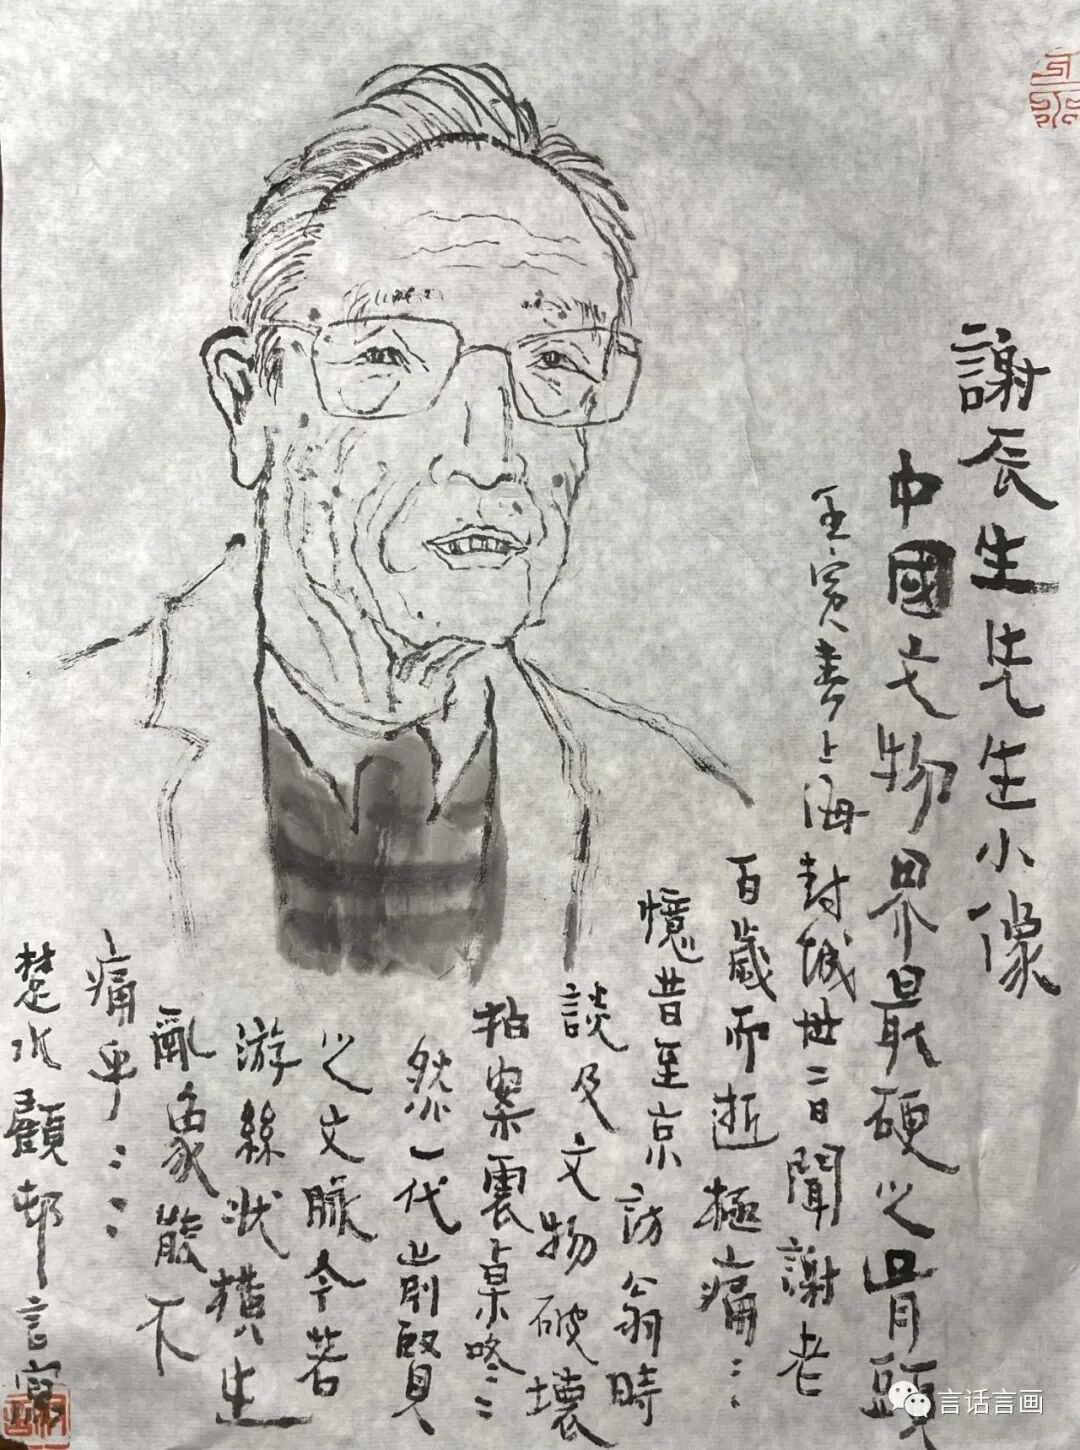 謝辰生先生小像
中國文物界最硬之骨頭
壬寅春上海封城廿二日聞謝老
百歲而逝極痛：：
憶昔至京訪翁時
談及文物破壞
拍案震桌咚：：
然一代前賢
之文脈今若
游絲狀橫生
亂象能不
痛乎：：：
楚水顧邨言寫
言话言画